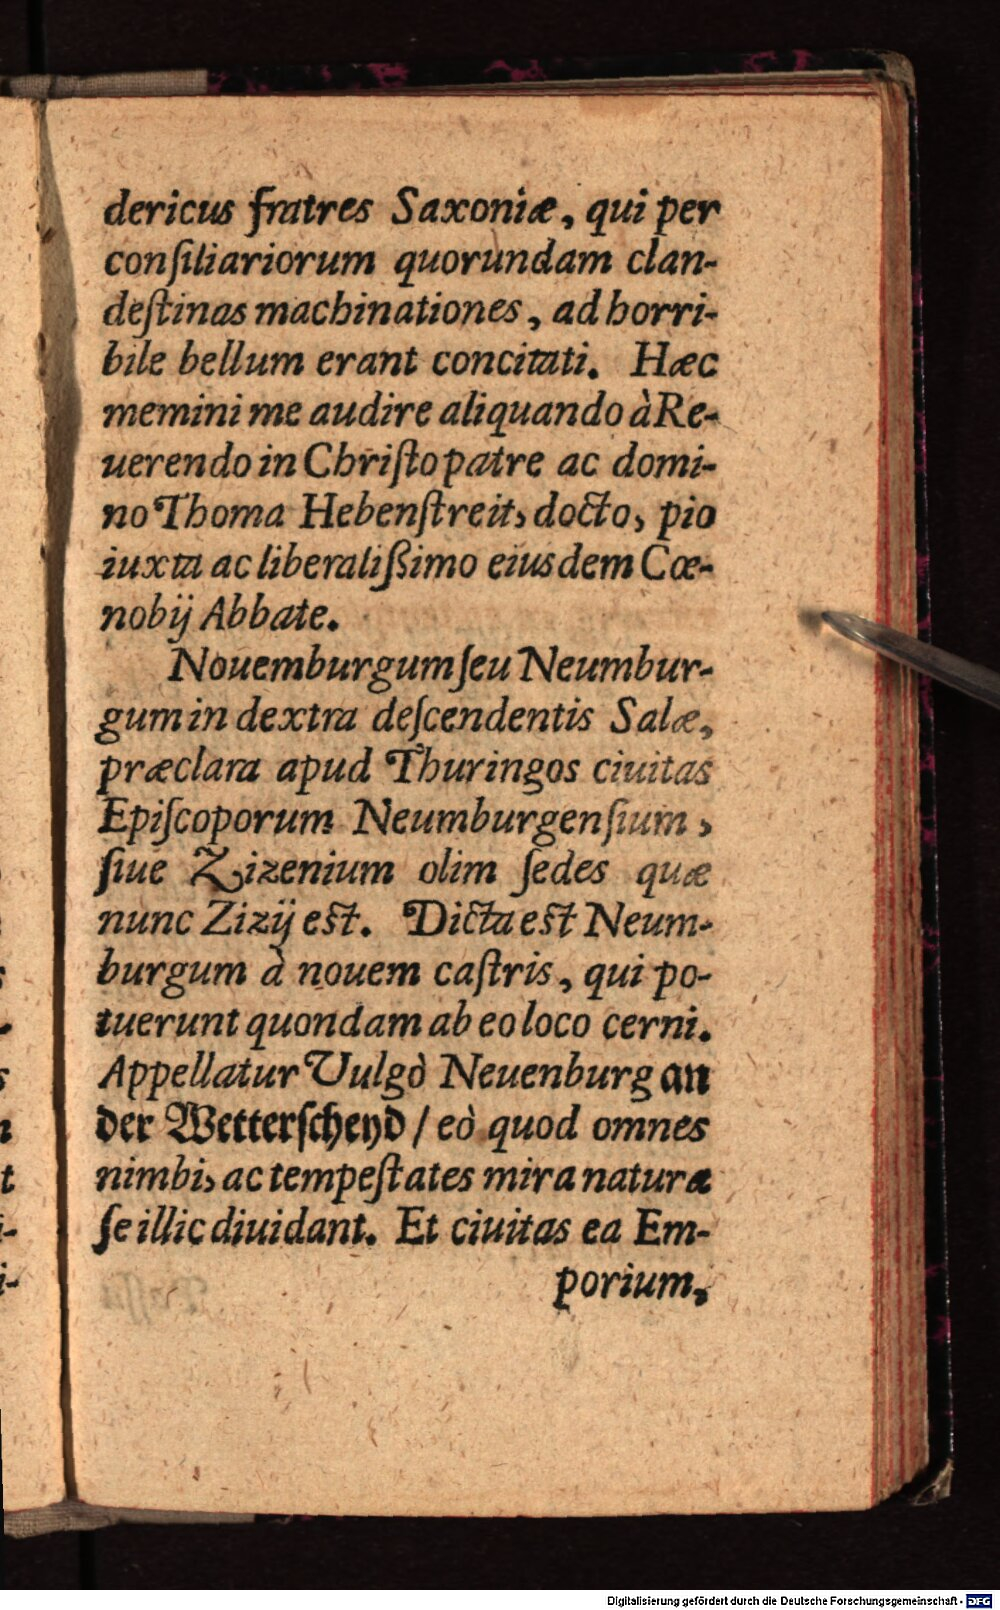 dericus fratres Saxoniæ, qui per
conſiliariorum quorundam clan-
deſtinas machinationes, ad horri-
bile bellum erant concitati. Hæc
memini me audire aliquando à Re-
uerendo in Chriſto patre ac domi-
no Thoma Hebenſtreit, docto, pio
iuxta ac liberaliſsimo eiusdem Cœ-
nobij Abbate.
Nouemburgum ſeu Neumbur-
gum in dextra deſcendentis Salæ,
præclara apud Thuringos ciuitas
Epiſcoporum Neumburgenſium,
ſiue Zizenium olim ſedes quæ
nunc Zizij eſt. Dicta eſt Neum-
burgum à nouem caſtris, qui po-
tuerunt quondam ab eo loco cerni.
Appellatur Vulgò Neuenburg an
der Wetterſcheyd / eò quod omnes
nimbi, ac tempeſtates mira natura
ſe illic diuidant. Et ciuitas ea Em-
porium,
Digitalisierung gefördert durch die Deutsche Forschungsgemeinschaft - DFG